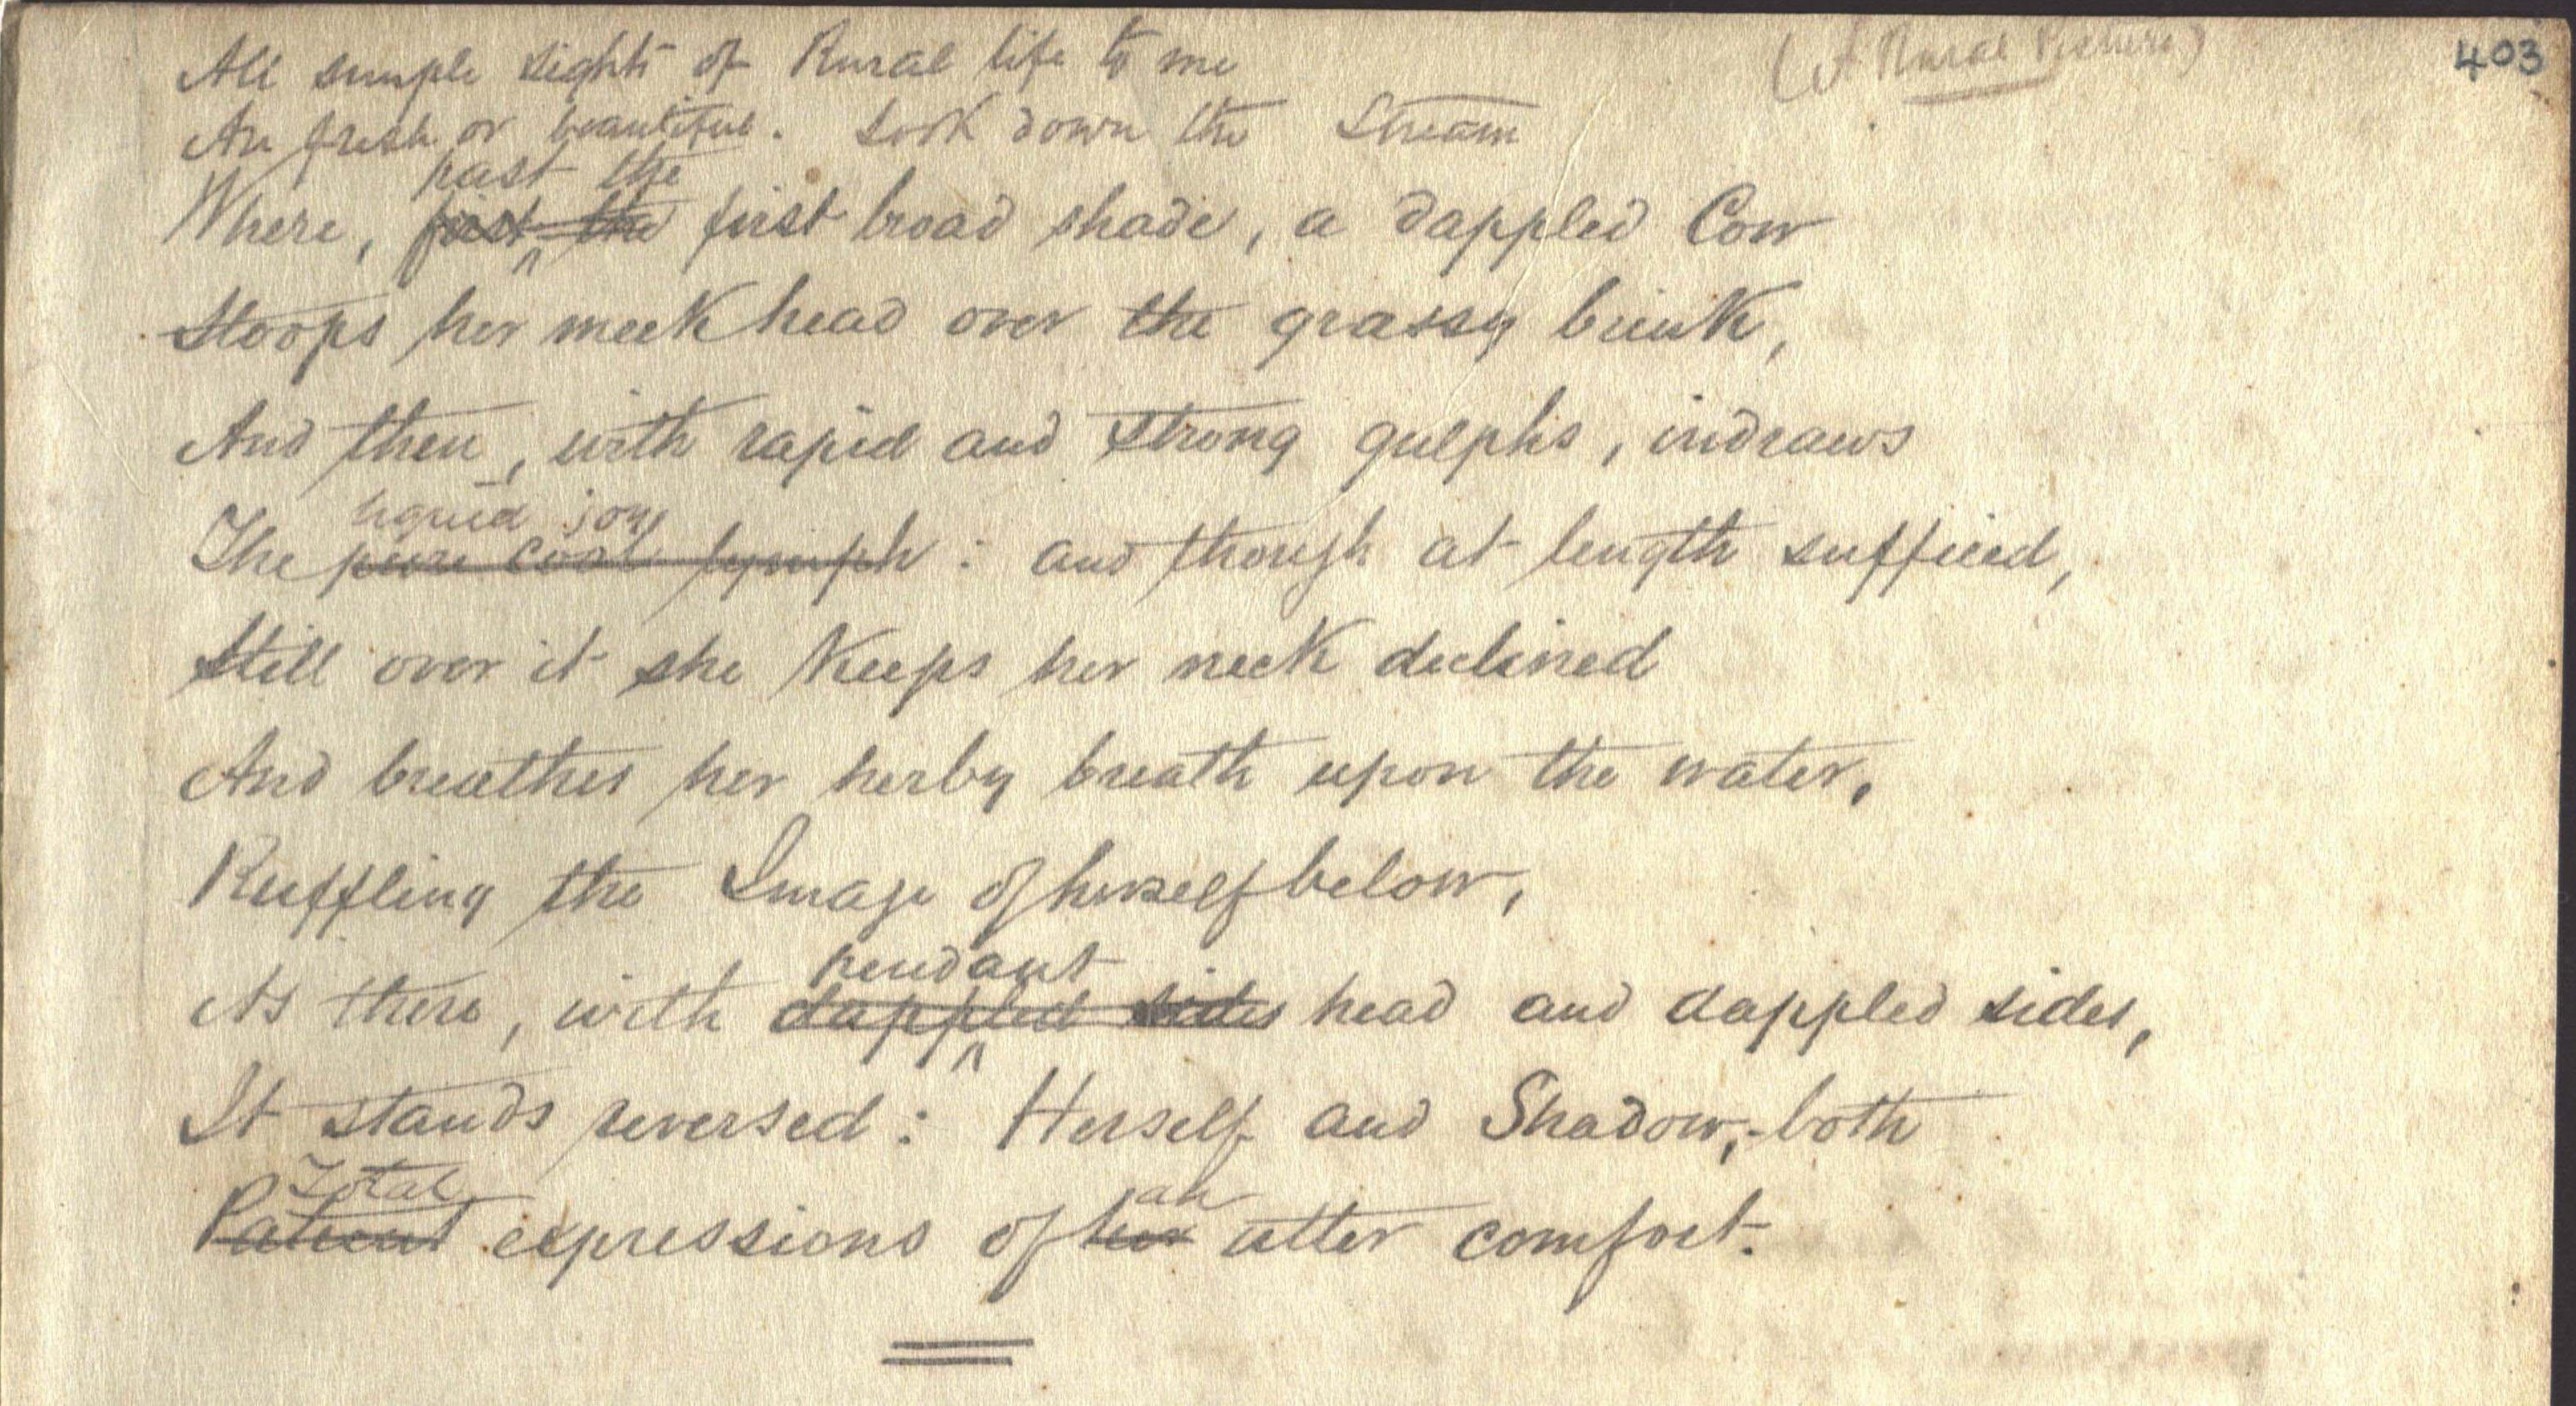 All simple sights of Rural life to me
(A Rural Picture)
403
Are fresh or beautiful. Look down the Stream
past the
Where, first the first broad shade, a dappled Cow
Stoops her meek head over the grassy brink,
And then, with rapid and strong gulphs, indraws
liquid joy
The pure cool lymph : and though at length sufficed,
Still over it she keeps her neck declined
And breathes her herby breath upon the water,
Ruffling the Image of herself below,
pendant
As there, with dappled sides head and dappled sides,
It stands reversed : Herself and Shadow,-both
Total an
Patient expressions of her utter comfort.